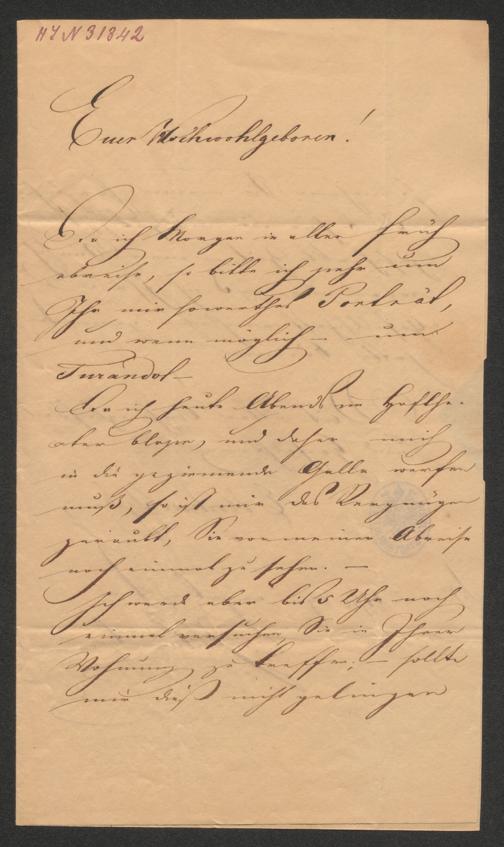 HIN 31842
Euer Hochwohlgeboren!
Da ich Morgen in aller früh
abreise, so bitte ich sehr um
Ihr mir so werthes Porträt,
und wenn möglich – um
Turandot –
Da ich heute Abends im Hofthe-
ater blase, und daher mich
in die geziemende Galla werfen
muß, so ist mir das Vergnügen
geraubt, Sie vor meiner Abreise
noch einmal zu sehen. –
Ich werde aber bis 5 Uhr noch
einmal versuchen, Sie in Ihrer
Wohnung zu treffen; – sollte
mir dieß nicht gelingen